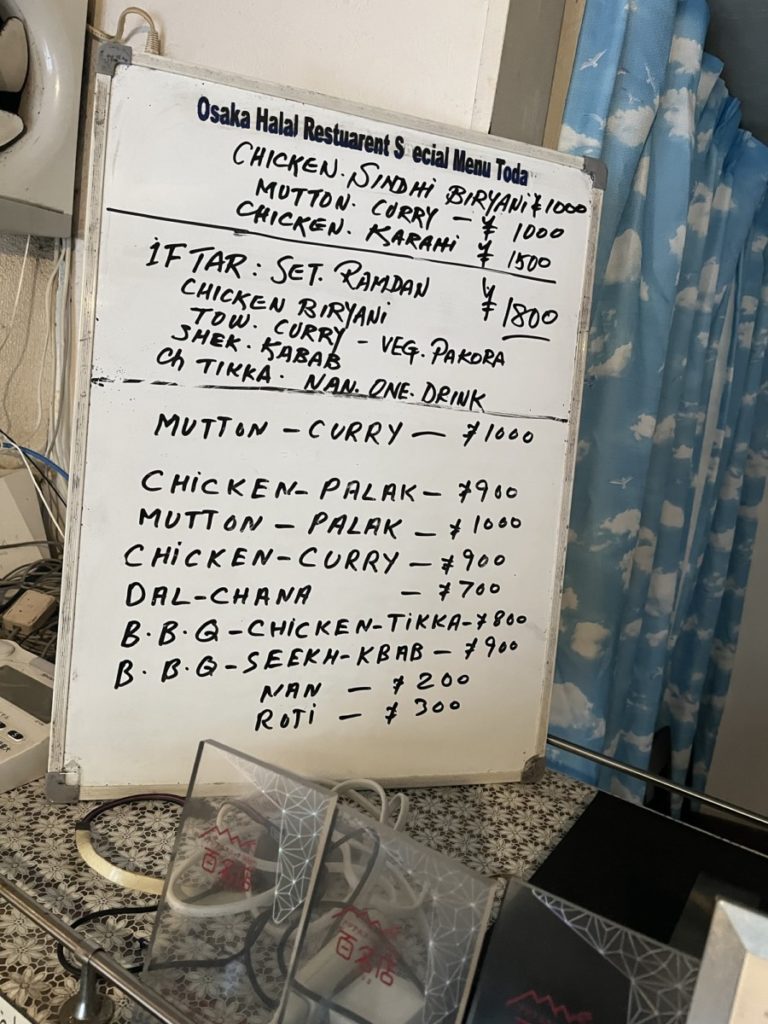 Osaka Halal Restuarent S ecial Menu Toda
CHICKEN. SINDHI BIRYANI ¥1000
MUTTON. CURRY - ¥ 1000
CHICKEN. KARAHI ¥ 1500
IFTAR: SET. RAMDAN ¥ 1800
CHICKEN BIRYANI
TOW. CURRY - VEG. PAKORA
SHEK. KABAB
Ch TIKKA. NAN. ONE. DRINK
MUTTON - CURRY - ¥1000
CHICKEN - PALAK - ¥900
MUTTON - PALAK - ¥1000
CHICKEN - CURRY - ¥900
DAL - CHANA - ¥700
B.B.Q - CHICKEN - TIKKA - ¥800
B.B.Q - SEEKH - KBAB - ¥900
NAN - ¥200
ROTI - ¥300
百名店
百名店